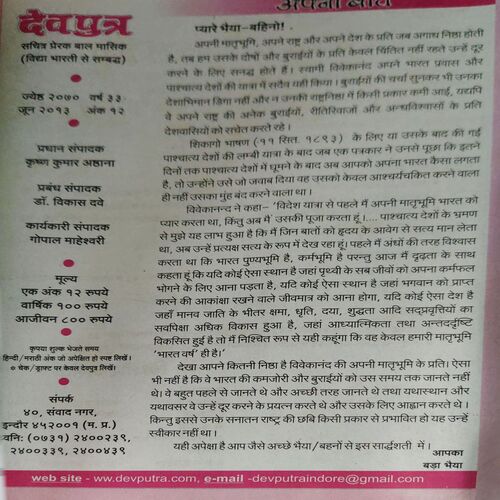 अपनी बात
देवपुत्र
सचित्र प्रेरक बाल मासिक
(विद्या भारती से सम्बद्ध)
ज्येष्ठ २०७० वर्ष ३३
जून २०१३ अंक १२
प्रधान संपादक
कृष्ण कुमार अष्ठाना
प्रबंध संपादक
डॉ. विकास दवे
कार्यकारी संपादक
गोपाल माहेश्वरी
मूल्य
एक अंक १२ रुपये
वार्षिक १०० रुपये
आजीवन ८०० रुपये
कृपया शुल्क भेजते समय
हिन्दी/मराठी अंक जो अपेक्षित हो स्पष्ट लिखें।
चेक/ड्राफ्ट पर केवल देवपुत्र लिखें।
संपर्क
४०, संवाद नगर,
इन्दौर ४५२००१ (म. प्र.)
ध्वनि: (०७३१) २४००२३९,
२४००३३९, २४००४३९
प्यारे भैया-बहिनो!
अपनी मातृभूमि, अपने राष्ट्र और अपने देश के प्रति जब अगाध निष्ठा होती
है, तब हम उसके दोषों और बुराईयों के प्रति केवल चिंतित नहीं रहते उन्हें दूर
करने के लिए सन्नद्ध होते हैं। स्वामी विवेकानंद अपने भारत प्रवास और
पाश्चात्य देशों की यात्रा में सदैव यही किया। बुराईयों की चर्चा सुनकर भी उनका
देशाभिमान डिगा नहीं और न उनकी राष्ट्रनिष्ठा में किसी प्रकार कमी आई, यद्यपि
वे अपने राष्ट्र की अनेक बुराईयों, रीतिरिवाजों और अन्धविश्वासों के प्रति
देशवासियों को सचेत करते रहे।
शिकागो भाषण (११ सित. १८९३) के लिए या उसके बाद की गई
पाश्चात्य देशों की लम्बी यात्रा के बाद जब एक पत्रकार ने उनसे पूछा कि इतने
दिनों तक पाश्चात्य देशों में घूमने के बाद अब आपको अपना भारत कैसा लगता
है, तो उन्होंने उसे जो जवाब दिया वह उसको केवल आश्चर्यचकित करने वाला
ही नहीं उसका मुंह बंद करने वाला था।
विवेकानन्द ने कहा- 'विदेश यात्रा से पहले मैं अपनी मातृभूमि भारत को
प्यार करता था, किंतु अब मैं उसकी पूजा करता हूं।.... पाश्चात्य देशों के भ्रमण
से मुझे यह लाभ हुआ है कि मैं जिन बातों को हृदय के आवेग से सत्य मान लेता
था, अब उन्हें प्रत्यक्ष सत्य के रूप में देख रहा हूं। पहले मैं अंधों की तरह विश्वास
करता था कि भारत पुण्यभूमि है, कर्मभूमि है परन्तु आज मैं दृढ़ता के साथ
कहता हूं कि यदि कोई ऐसा स्थान है जहां पृथ्वी के सब जीवों को अपना कर्मफल
भोगने के लिए आना पड़ता है, यदि कोई ऐसा स्थान है जहां भगवान को प्राप्त
करने की आकांक्षा रखने वाले जीवमात्र को आना होगा, यदि कोई ऐसा देश है
जहाँ मानव जाति के भीतर क्षमा, धृति, दया, शुद्धता आदि सद्प्रवृत्तियों का
सर्वापेक्षा अधिक विकास हुआ है, जहां आध्यात्मिकता तथा अन्तर्दृष्टि
विकसित हुई है तो मैं निश्चित रूप से यही कहूंगा कि वह केवल हमारी मातृभूमि
'भारत वर्ष' ही है।'
देखा आपने कितनी निष्ठा है विवेकानंद की अपनी मातृभूमि के प्रति। ऐसा
भी नहीं है कि वे भारत की कमजोरी और बुराईयों को उस समय तक जानते नहीं
थे। वे बहुत पहले से जानते थे और अच्छी तरह जानते थे तथा यथास्थान और
यथावसर वे उन्हें दूर करने के प्रयत्न करते थे और उसके लिए आह्वान करते थे।
किन्तु इससे उनके सनातन राष्ट्र की छबि किसी प्रकार से प्रभावित हो यह उन्हें
स्वीकार नहीं था।
यही अपेक्षा है आप जैसे अच्छे भैया/बहनों से इस सार्द्धशती में।
आपका
बड़ा भैया
web site - www.devputra.com, e-mail -devputraindore@gmail.com